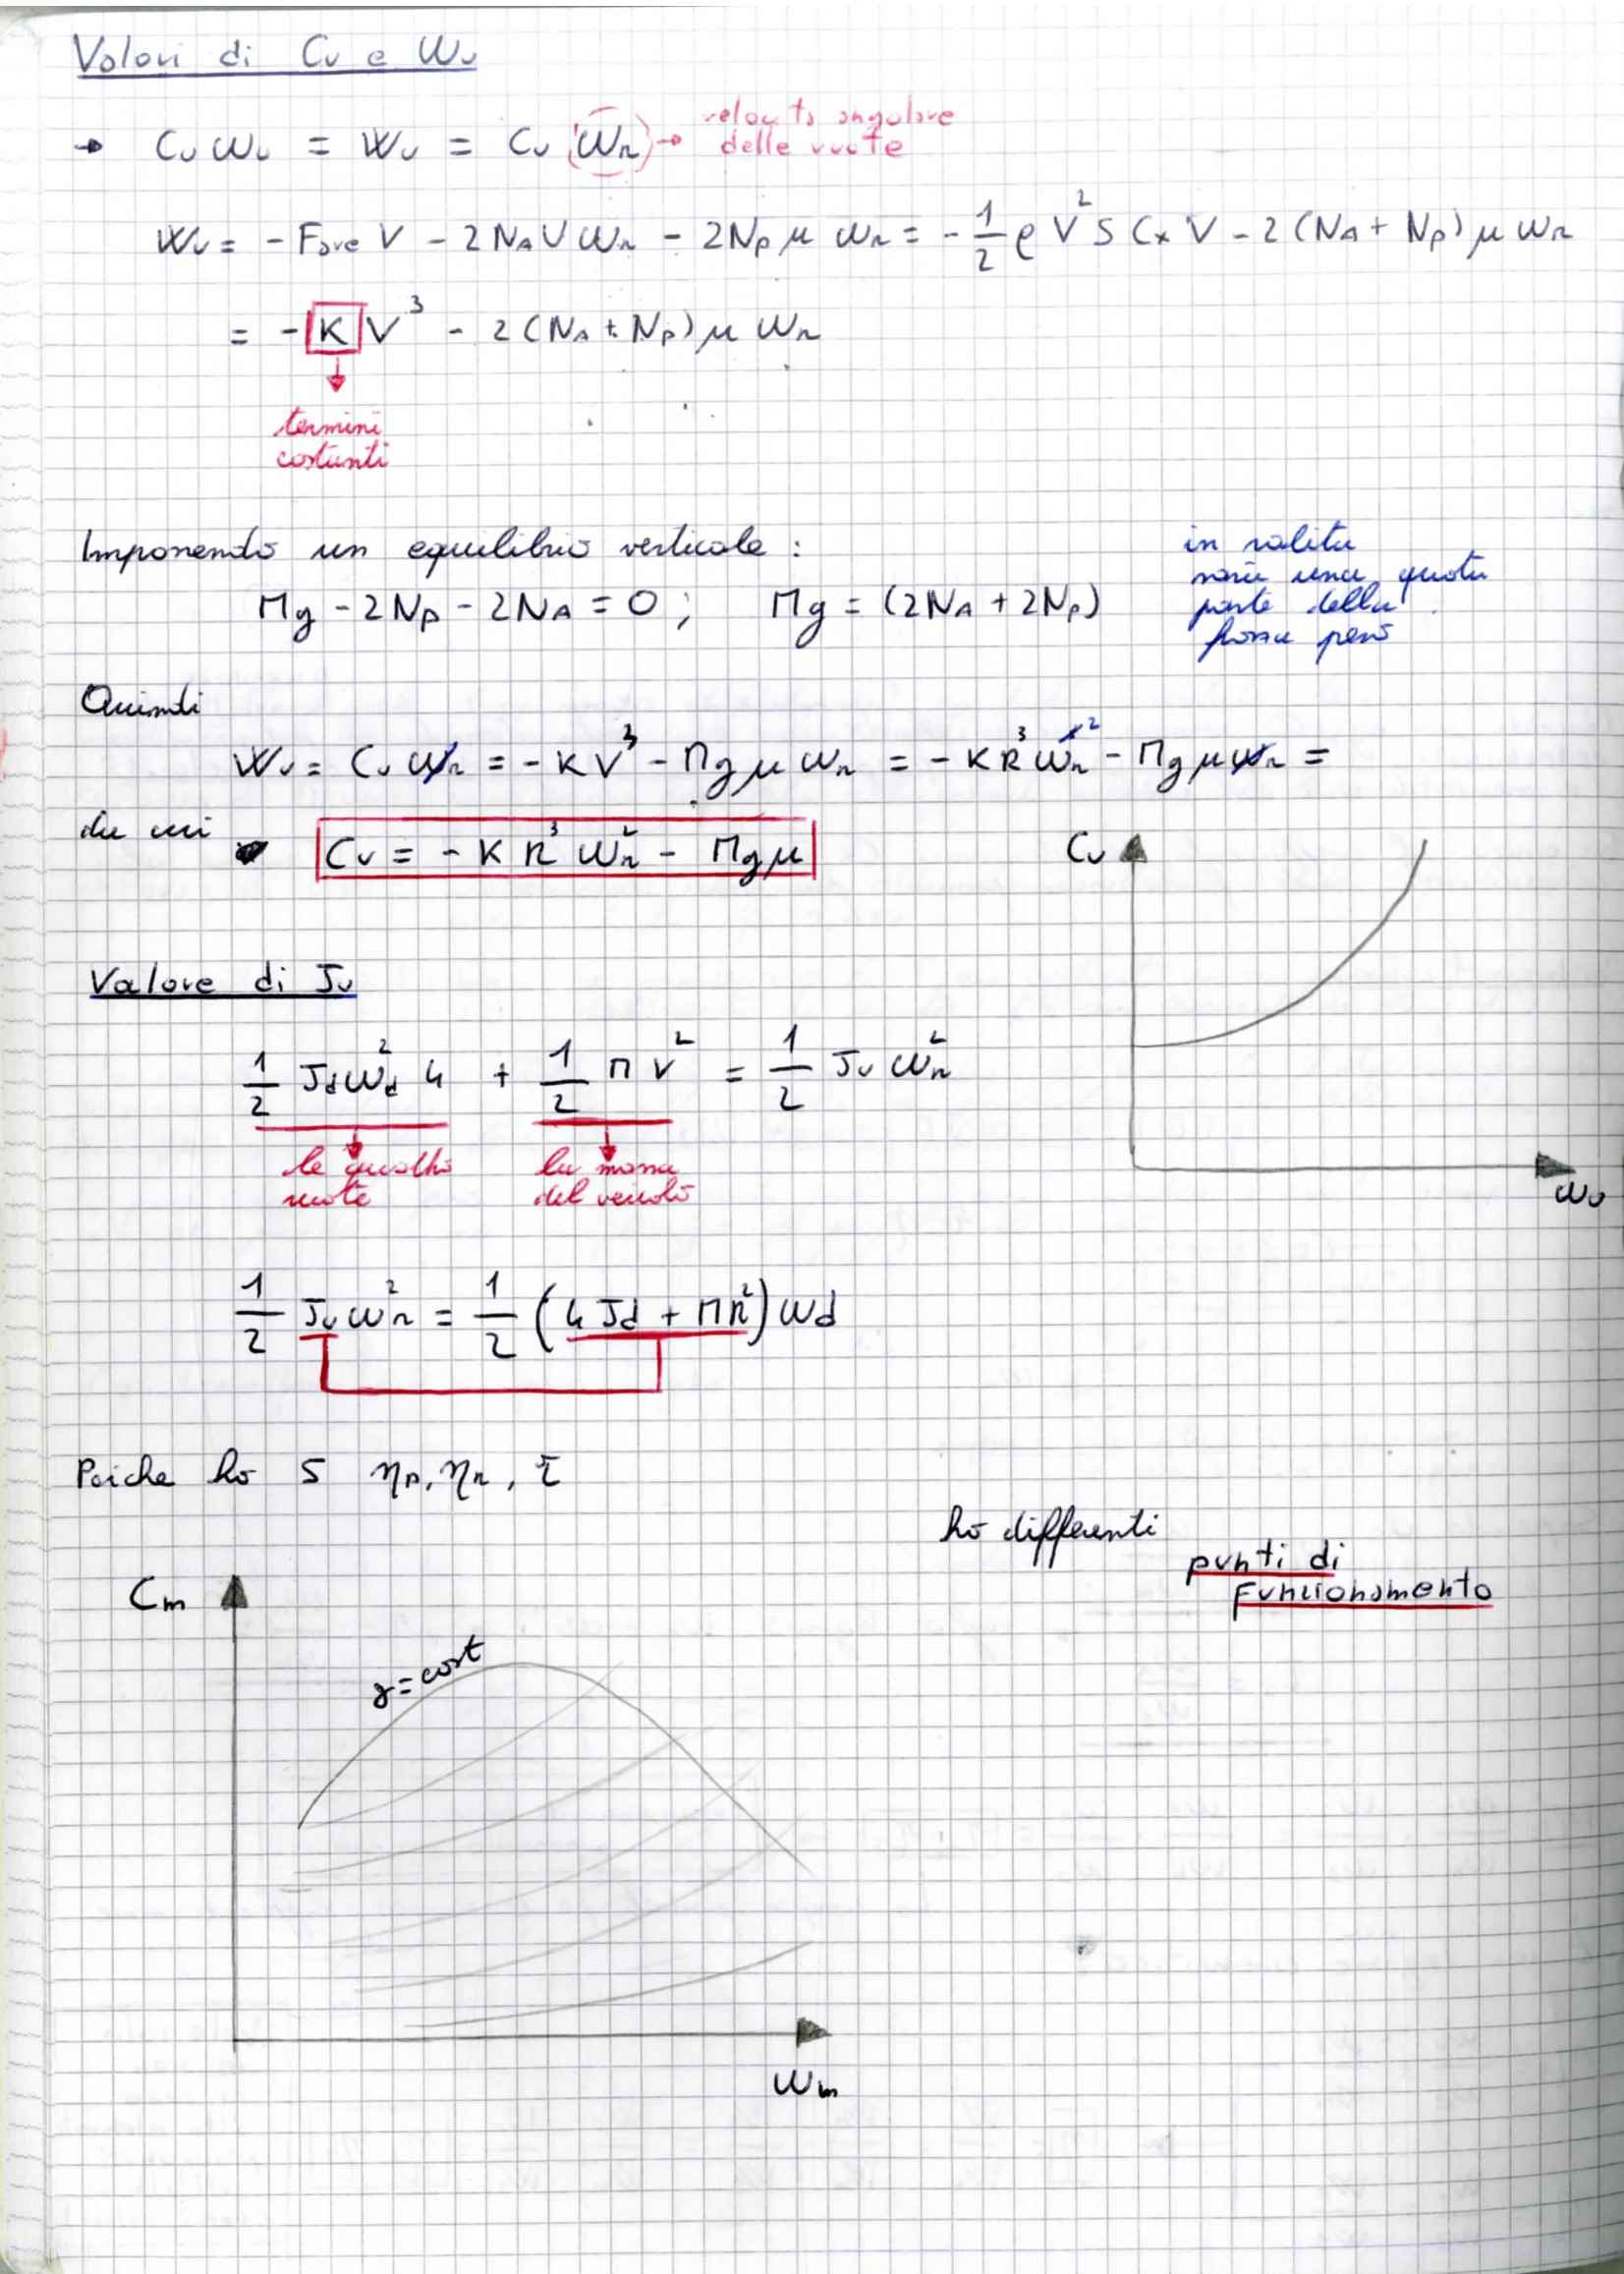 Valori di Cv e Wv
→ Cv ωv = Wv = Cv (ωr) → velocità angolare
delle ruote
Wv = - Fare V - 2NA U ωr - 2Np μ ωr = - 1/2 ρ V² S Cx V - 2 (NA + Np) μ ωr
= - K V³ - 2 (NA + Np) μ ωr
termini
costanti
Imponendo un equilibrio verticale :
Mg - 2Np - 2NA = 0 ; Mg = (2NA + 2Np)
in salita
sarà una quota
parte della
forza peso
Quindi
Wv = Cv ωr = - K V³ - Mg μ ωr = - K R³ ωr³ ² - Mg μ ωr =
da cui Cv = - K R³ ωr² - Mg μ
Cv
ωv
Valore di Jv
1/2 Jd ωd² 4 + 1/2 M V² = 1/2 Jv ωr²
le quattro
ruote
la massa
del veicolo
1/2 Jv ωr² = 1/2 (4 Jd + M R²) ωd
Poiche ho 5 ηp, ηr, τ
ho differenti
punti di
funzionamento
Cm
γ = cost
ωm